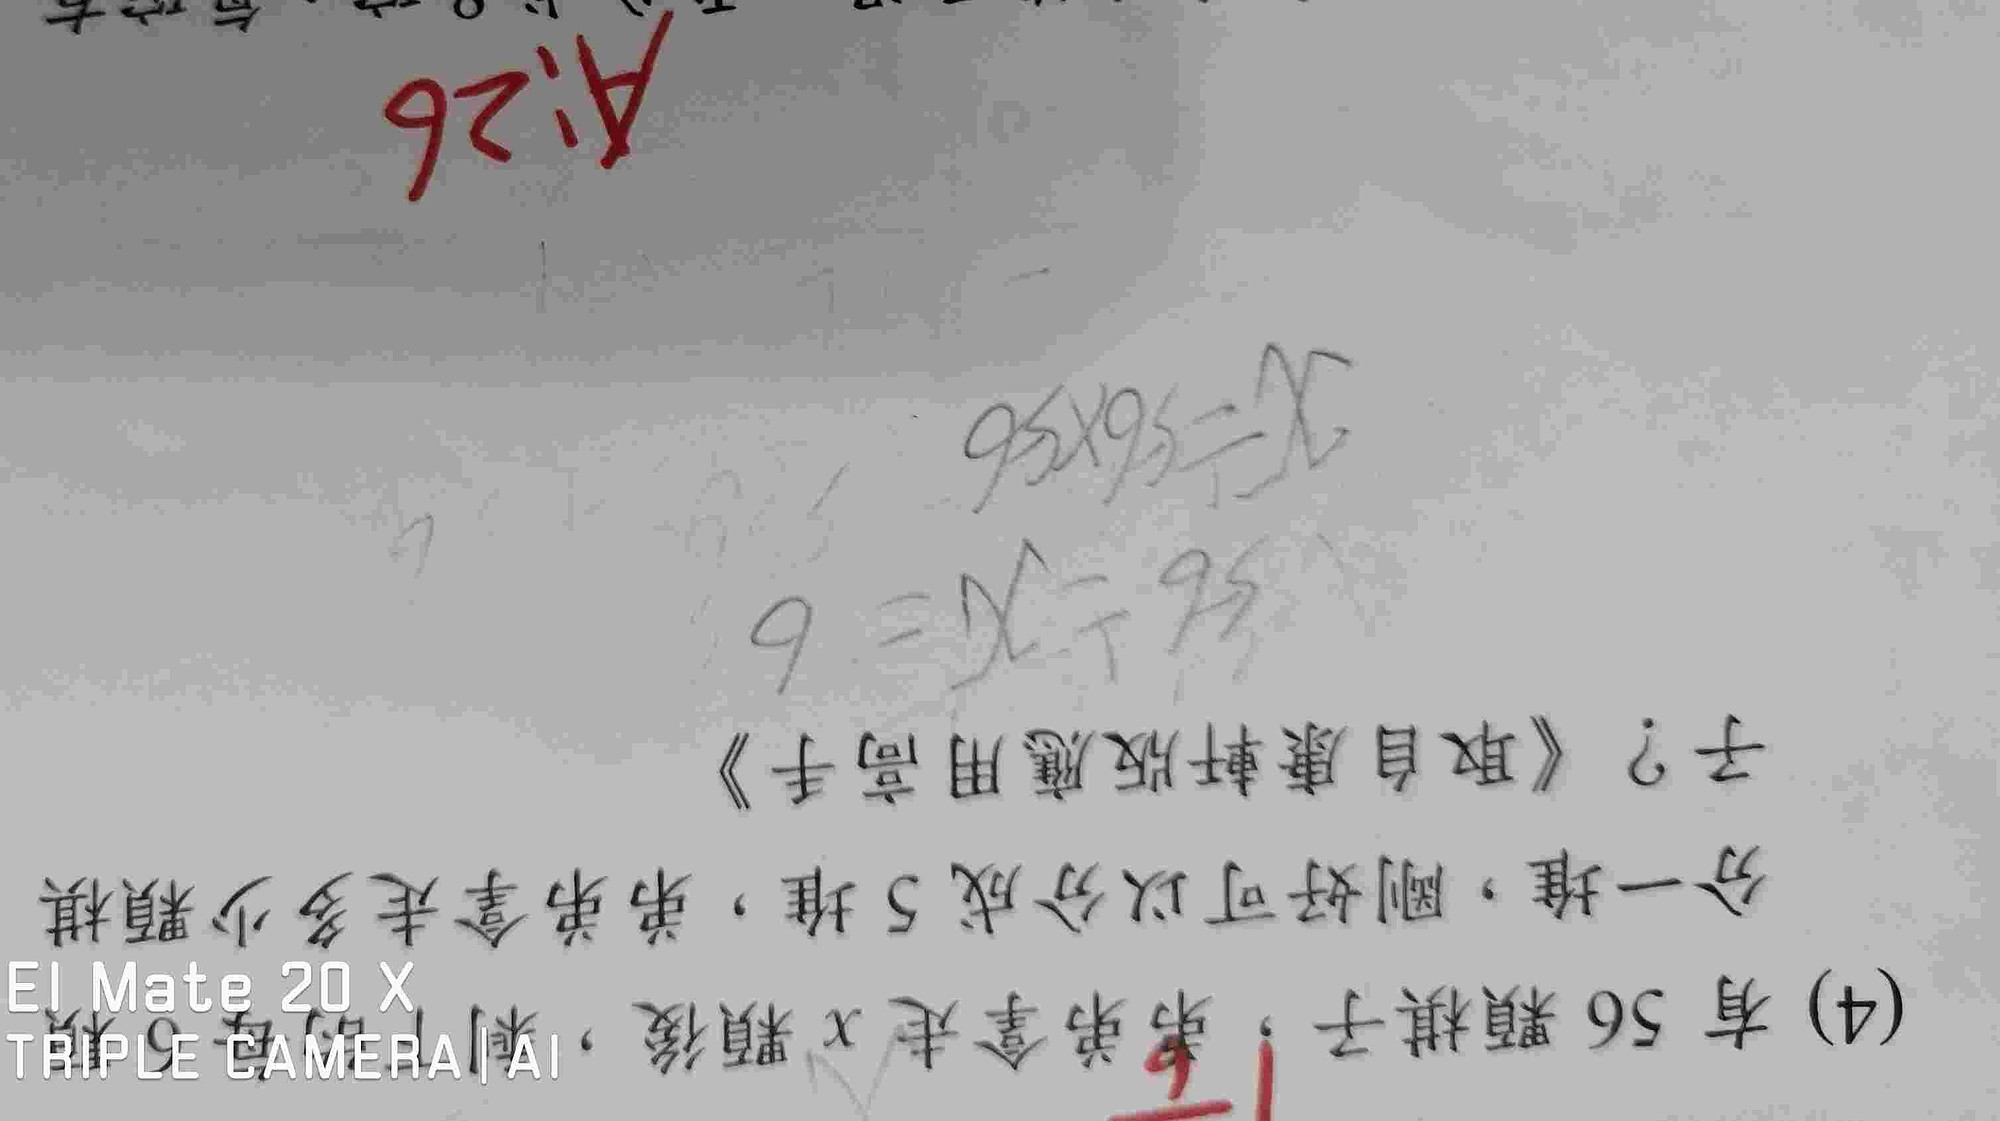 (4) 有 56 顆棋子，弟弟拿走 x 顆後，剩下的每 6 顆
分一堆，剛好可以分成 5 堆，弟弟拿走多少顆棋
子？《取自康軒版應用高手》
56÷x=6
x=56x56
A:26
EI Mate 20 X
TRIPLE CAMERA | AI